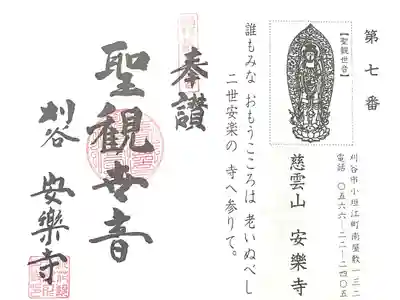 第七番
【聖観世音】
刈谷市小垣江町南屋敷一三二
電話 〇五六六―二二―二四〇五
慈雲山 安楽寺
誰もみな おもうこころは 老いぬべし
二世安楽の 寺へ参りて。
奉讃
聖観世音
刈谷 安樂寺